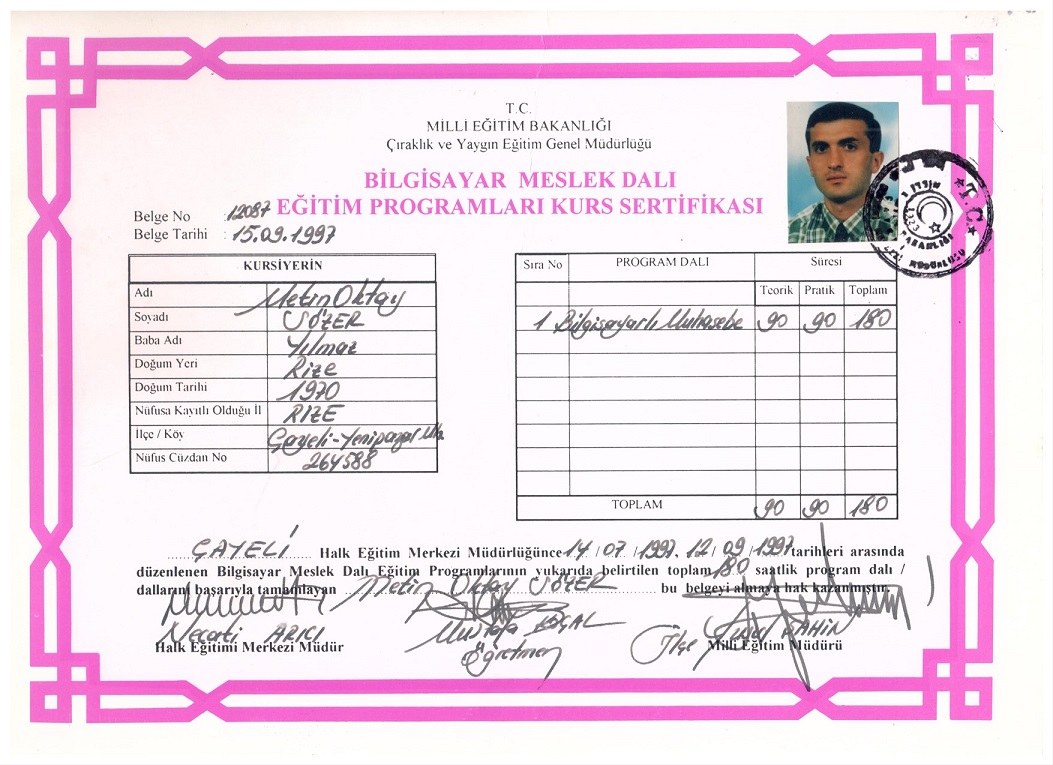 T.C.
MİLLİ EĞİTİM BAKANLIĞI
Çıraklık ve Yaygın Eğitim Genel Müdürlüğü
BİLGİSAYAR MESLEK DALI
EĞİTİM PROGRAMLARI KURS SERTİFİKASI
Belge No : 12087
Belge Tarihi : 15.09.1997
T.C.
KURSİYERİN
Adı Metin Oktay
Soyadı SÖZER
Baba Adı Yılmaz
Doğum Yeri Rize
Doğum Tarihi 1970
Nüfusa Kayıtlı Olduğu İl RİZE
İlçe / Köy Çayeli-Yenipazar Mh.
Nüfus Cüzdan No 264588
Sıra No PROGRAM DALI Süresi
Teorik Pratik Toplam
1 Bilgisayarlı Muhasebe 90 90 180
TOPLAM 90 90 180
ÇAYELİ Halk Eğitim Merkezi Müdürlüğünce 14 / 07 / 1997, 12 / 09 / 1997 tarihleri arasında
düzenlenen Bilgisayar Meslek Dalı Eğitim Programlarının yukarıda belirtilen toplam 180 saatlik program dalı /
dallarını başarıyla tamamlayan Metin Oktay SÖZER bu belgeyi almaya hak kazanmıştır.
Necati ARICI
Halk Eğitimi Merkezi Müdür
Mustafa
Öğretmen
ŞAHİN
İlçe Milli Eğitim Müdürü